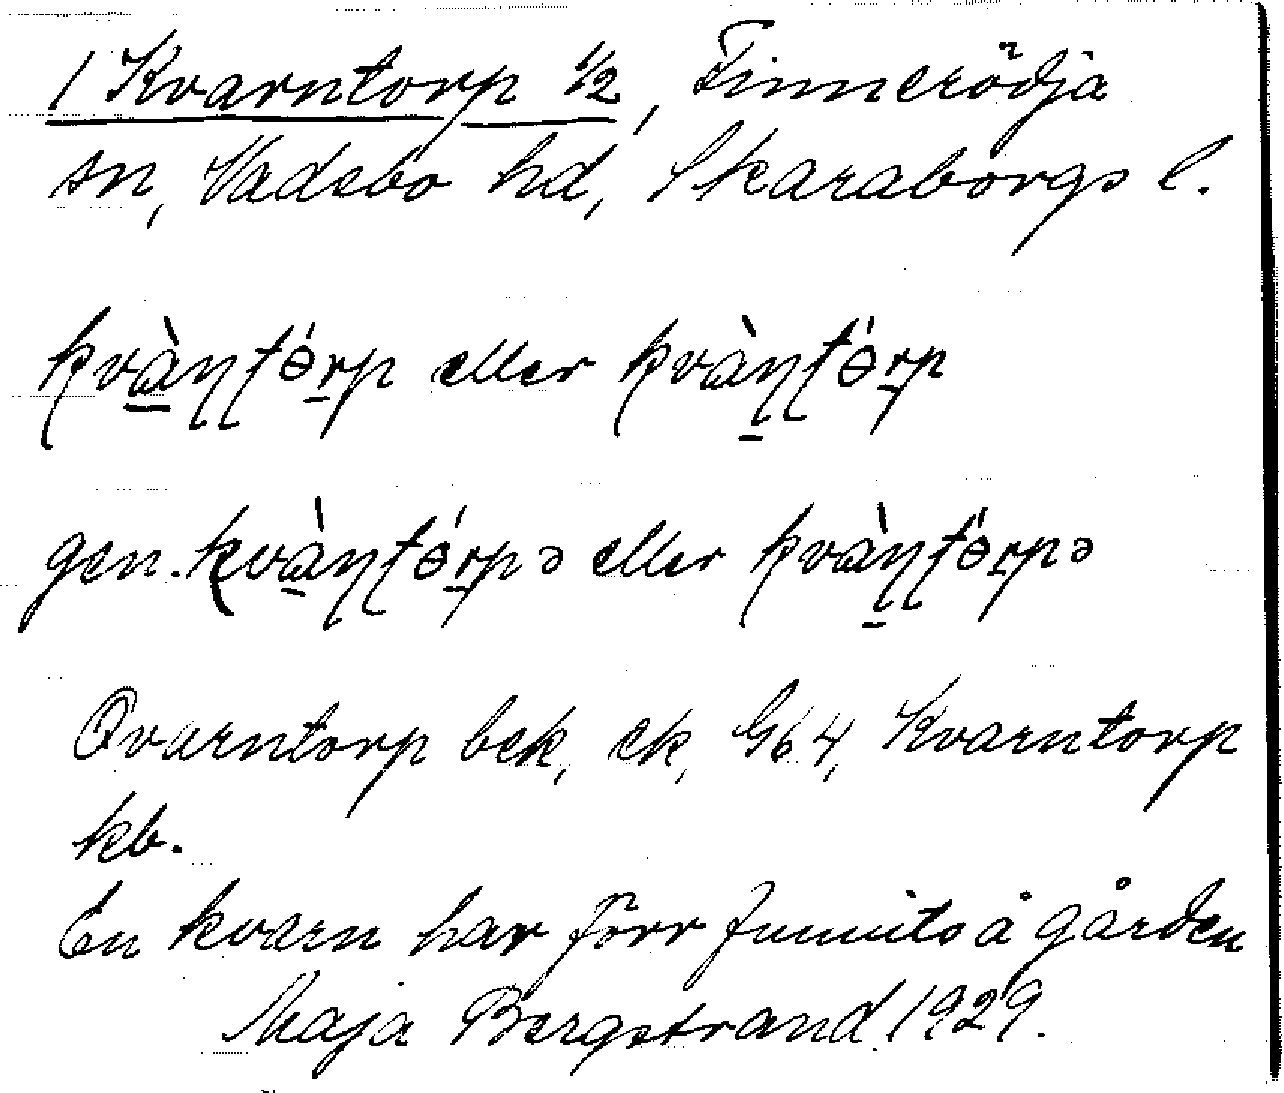 1 Kvarntorp 1/2, Finnerödja
sn, Vadsbo hd, Skaraborgs l.
kvàɳʈɵ́rp eller kvàɳʈɵ́rp
gen. kvàɳʈɵ́rpə eller kvàɳʈɵ́rpə
Qvarntorp bek, ek, Gb 4, Kvarntorp
kb.
En kvarn har förr funnits å gården
Maja Bergstrand 1929.